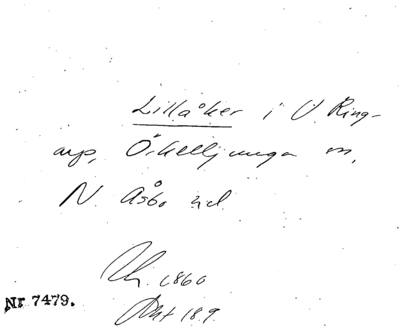 Lillåker i V. Ring-
arp, Örkelljunga sn,
N. Åsbo hd
1860
Nr 7479.
189